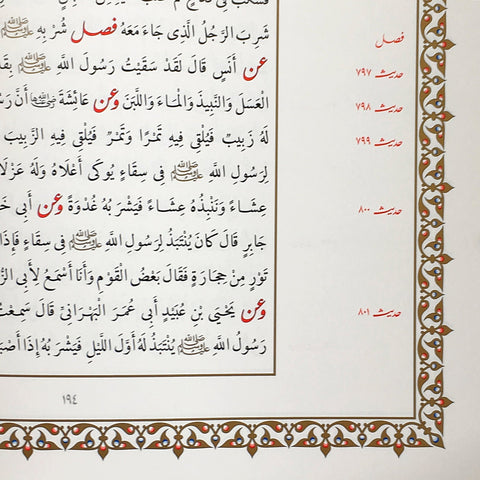 شَرِبَ الرَّجُلُ الَّذِي جَاءَ مَعَهُ فصل شُرْبِهِ ﷺ
عن أَنَسٍ قَالَ لَقَدْ سَقَيْتُ رَسُولَ اللَّهِ ﷺ
الْعَسَلَ وَالنَّبِيذَ وَالْمَاءَ وَاللَّبَنَ وعن عَائِشَةَ
لَهُ زَبِيبٌ فَيُلْقِي فِيهِ تَمْرًا وَتَمْرٌ فَيُلْقِي فِيهِ الزَّبِيبَ
لِرَسُولِ اللَّهِ ﷺ فِي سِقَاءٍ يُوكَى أَعْلَاهُ وَلَهُ
عِشَاءً وَنَنْبِذُهُ عِشَاءً فَيَشْرَبُهُ غُدْوَةً وعن أَبِي
جَابِرٍ قَالَ كَانَ يُنْتَبَذُ لِرَسُولِ اللَّهِ ﷺ فِي سِقَاءٍ
تَوْرٍ مِنْ حِجَارَةٍ فَقَالَ بَعْضُ الْقَوْمِ وَأَنَا أَسْمَعُ لِأَبِي
وعن يَحْيَى بْنِ عُبَيْدٍ أَبِي عُمَرَ الْبَهْرَانِيِّ قَالَ سَمِعْتُ
رَسُولُ اللَّهِ ﷺ يُنْتَبَذُ لَهُ أَوَّلَ اللَّيْلِ فَيَشْرَبُهُ إِذَا
فصل
حديث ٧٩٧
حديث ٧٩٨
حديث ٧٩٩
حديث ٨٠٠
حديث ٨٠١
١٩٤